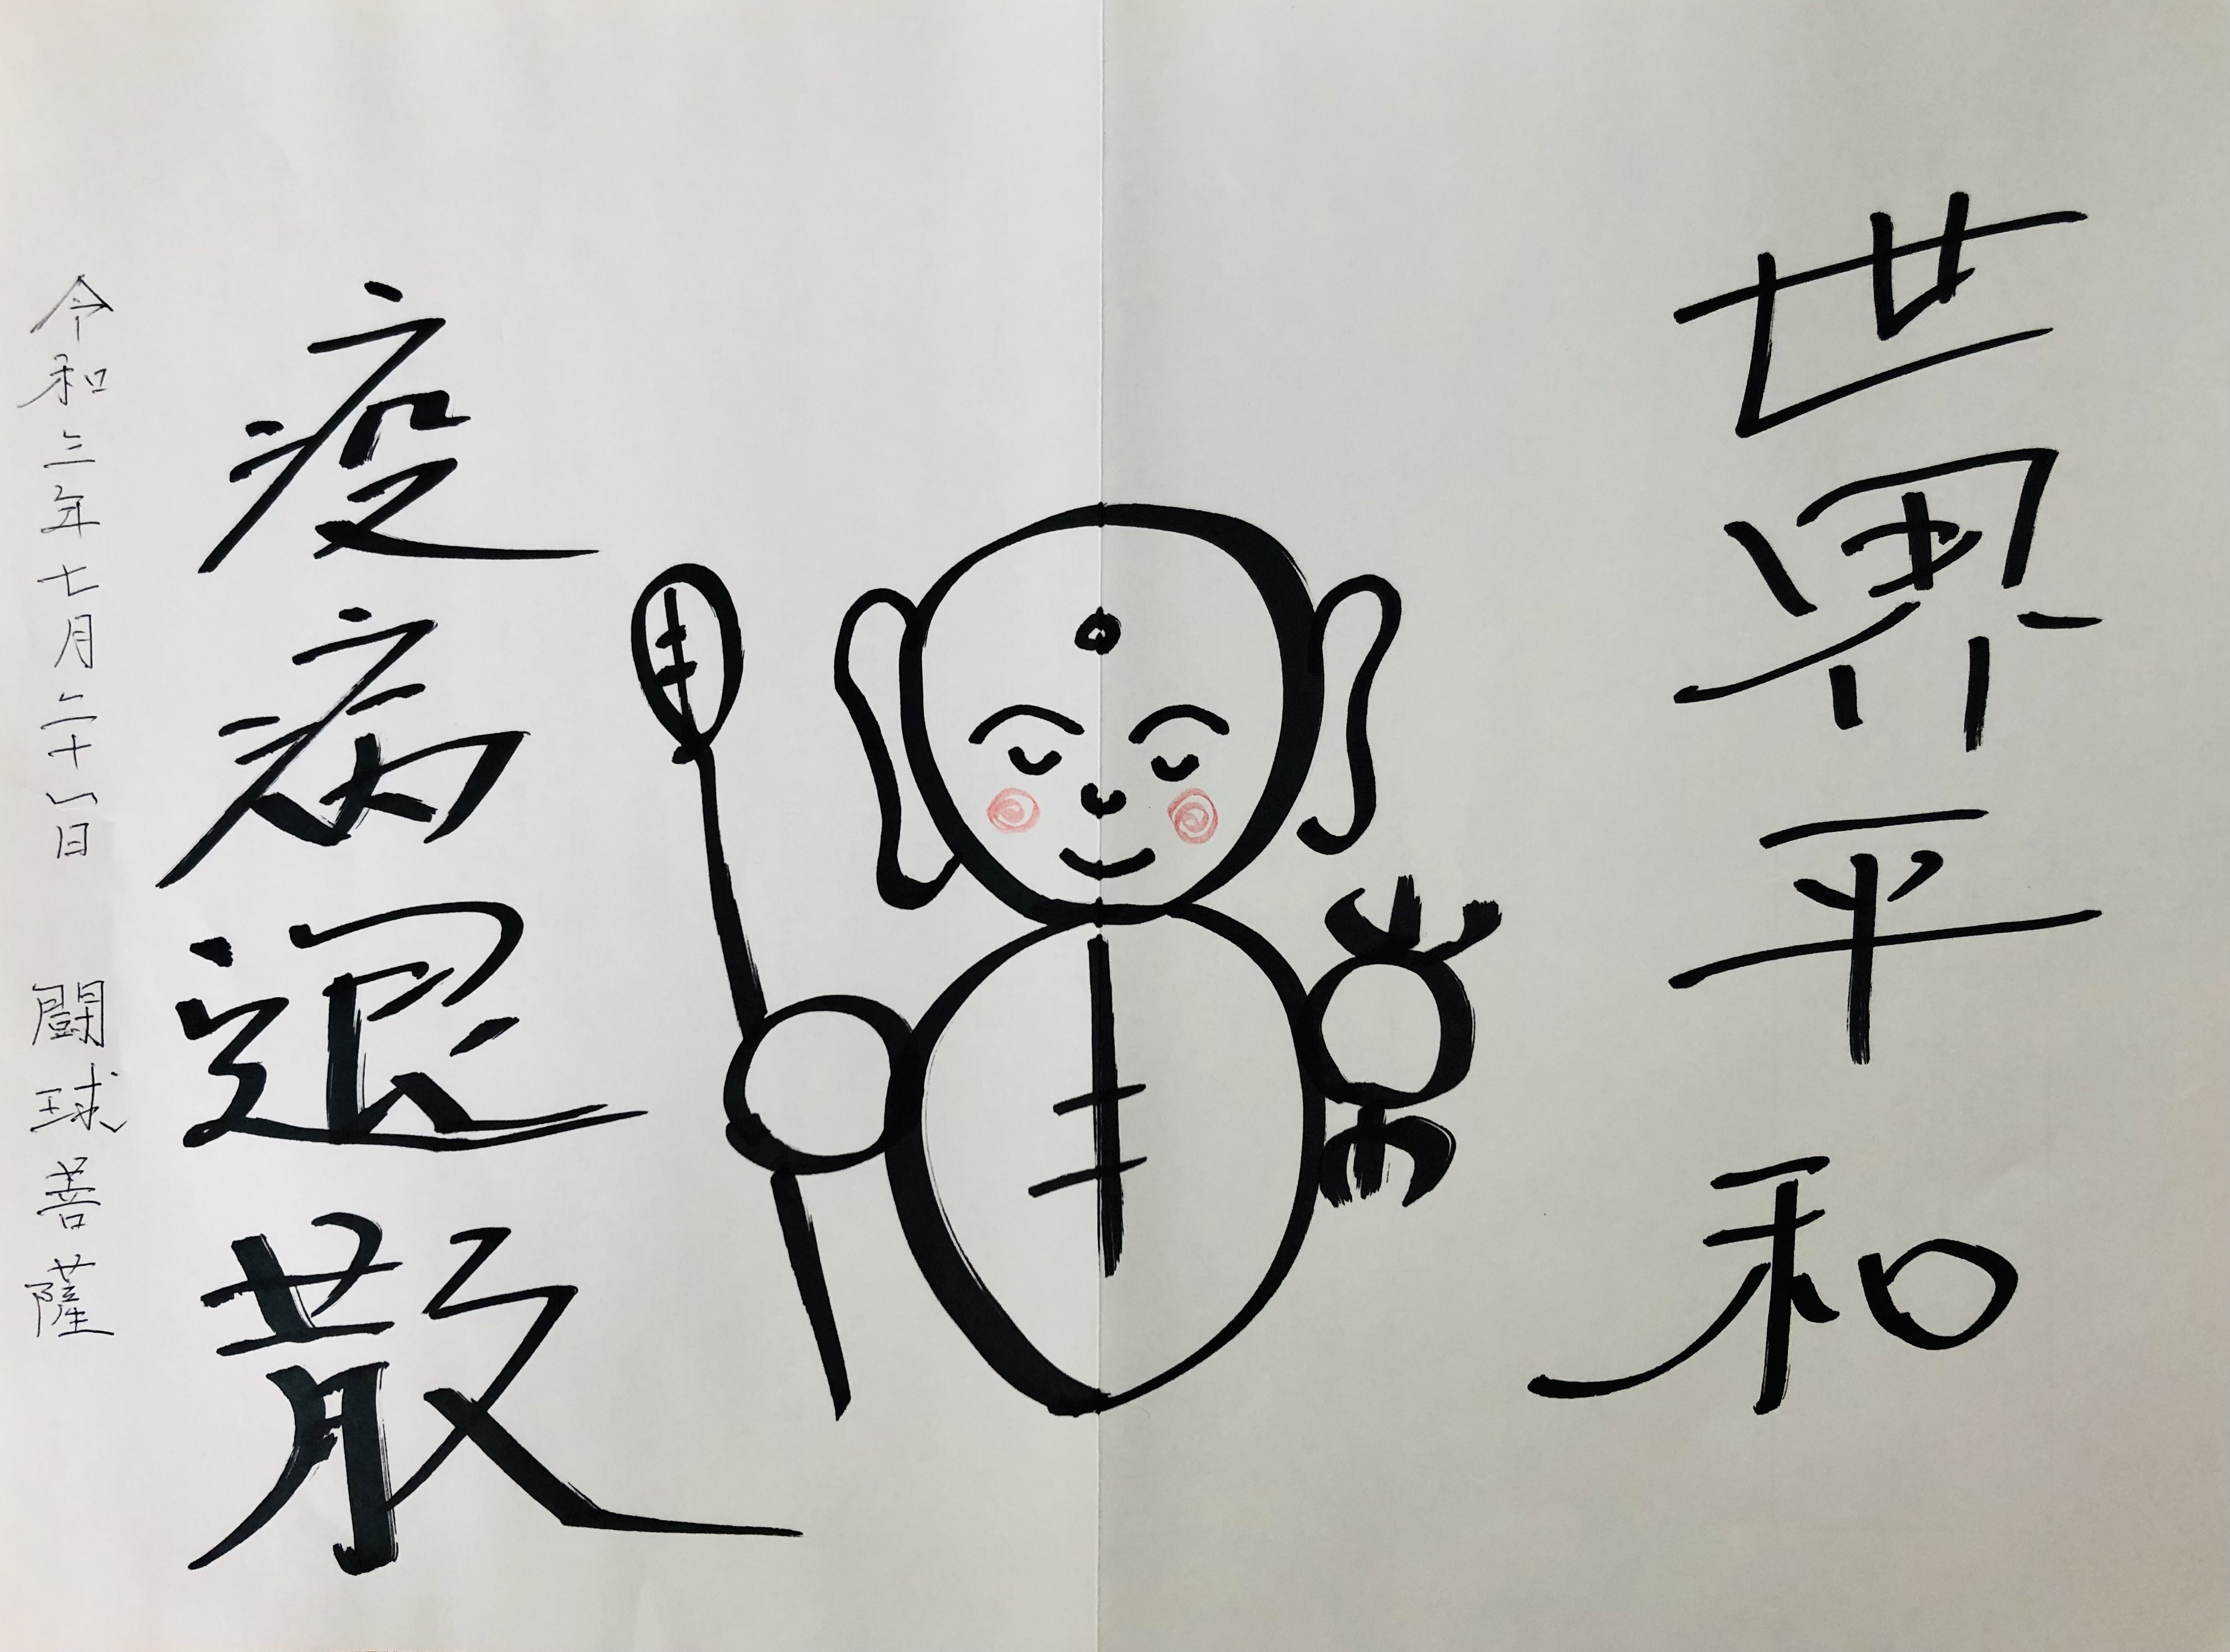 世界平和
疫病退散
令和三年七月二十一日 闘球菩薩